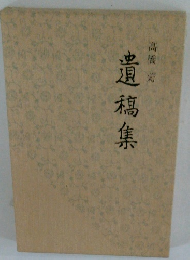 高橋
遺稿集